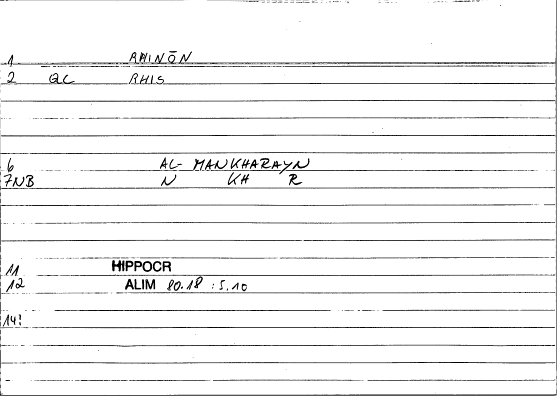 1 RHINŌN
2 QC RHIS
6 AL- MANKHARAYN
7NB N KH R
11 HIPPOCR
12 ALIM 80.18 : 5.10
14: